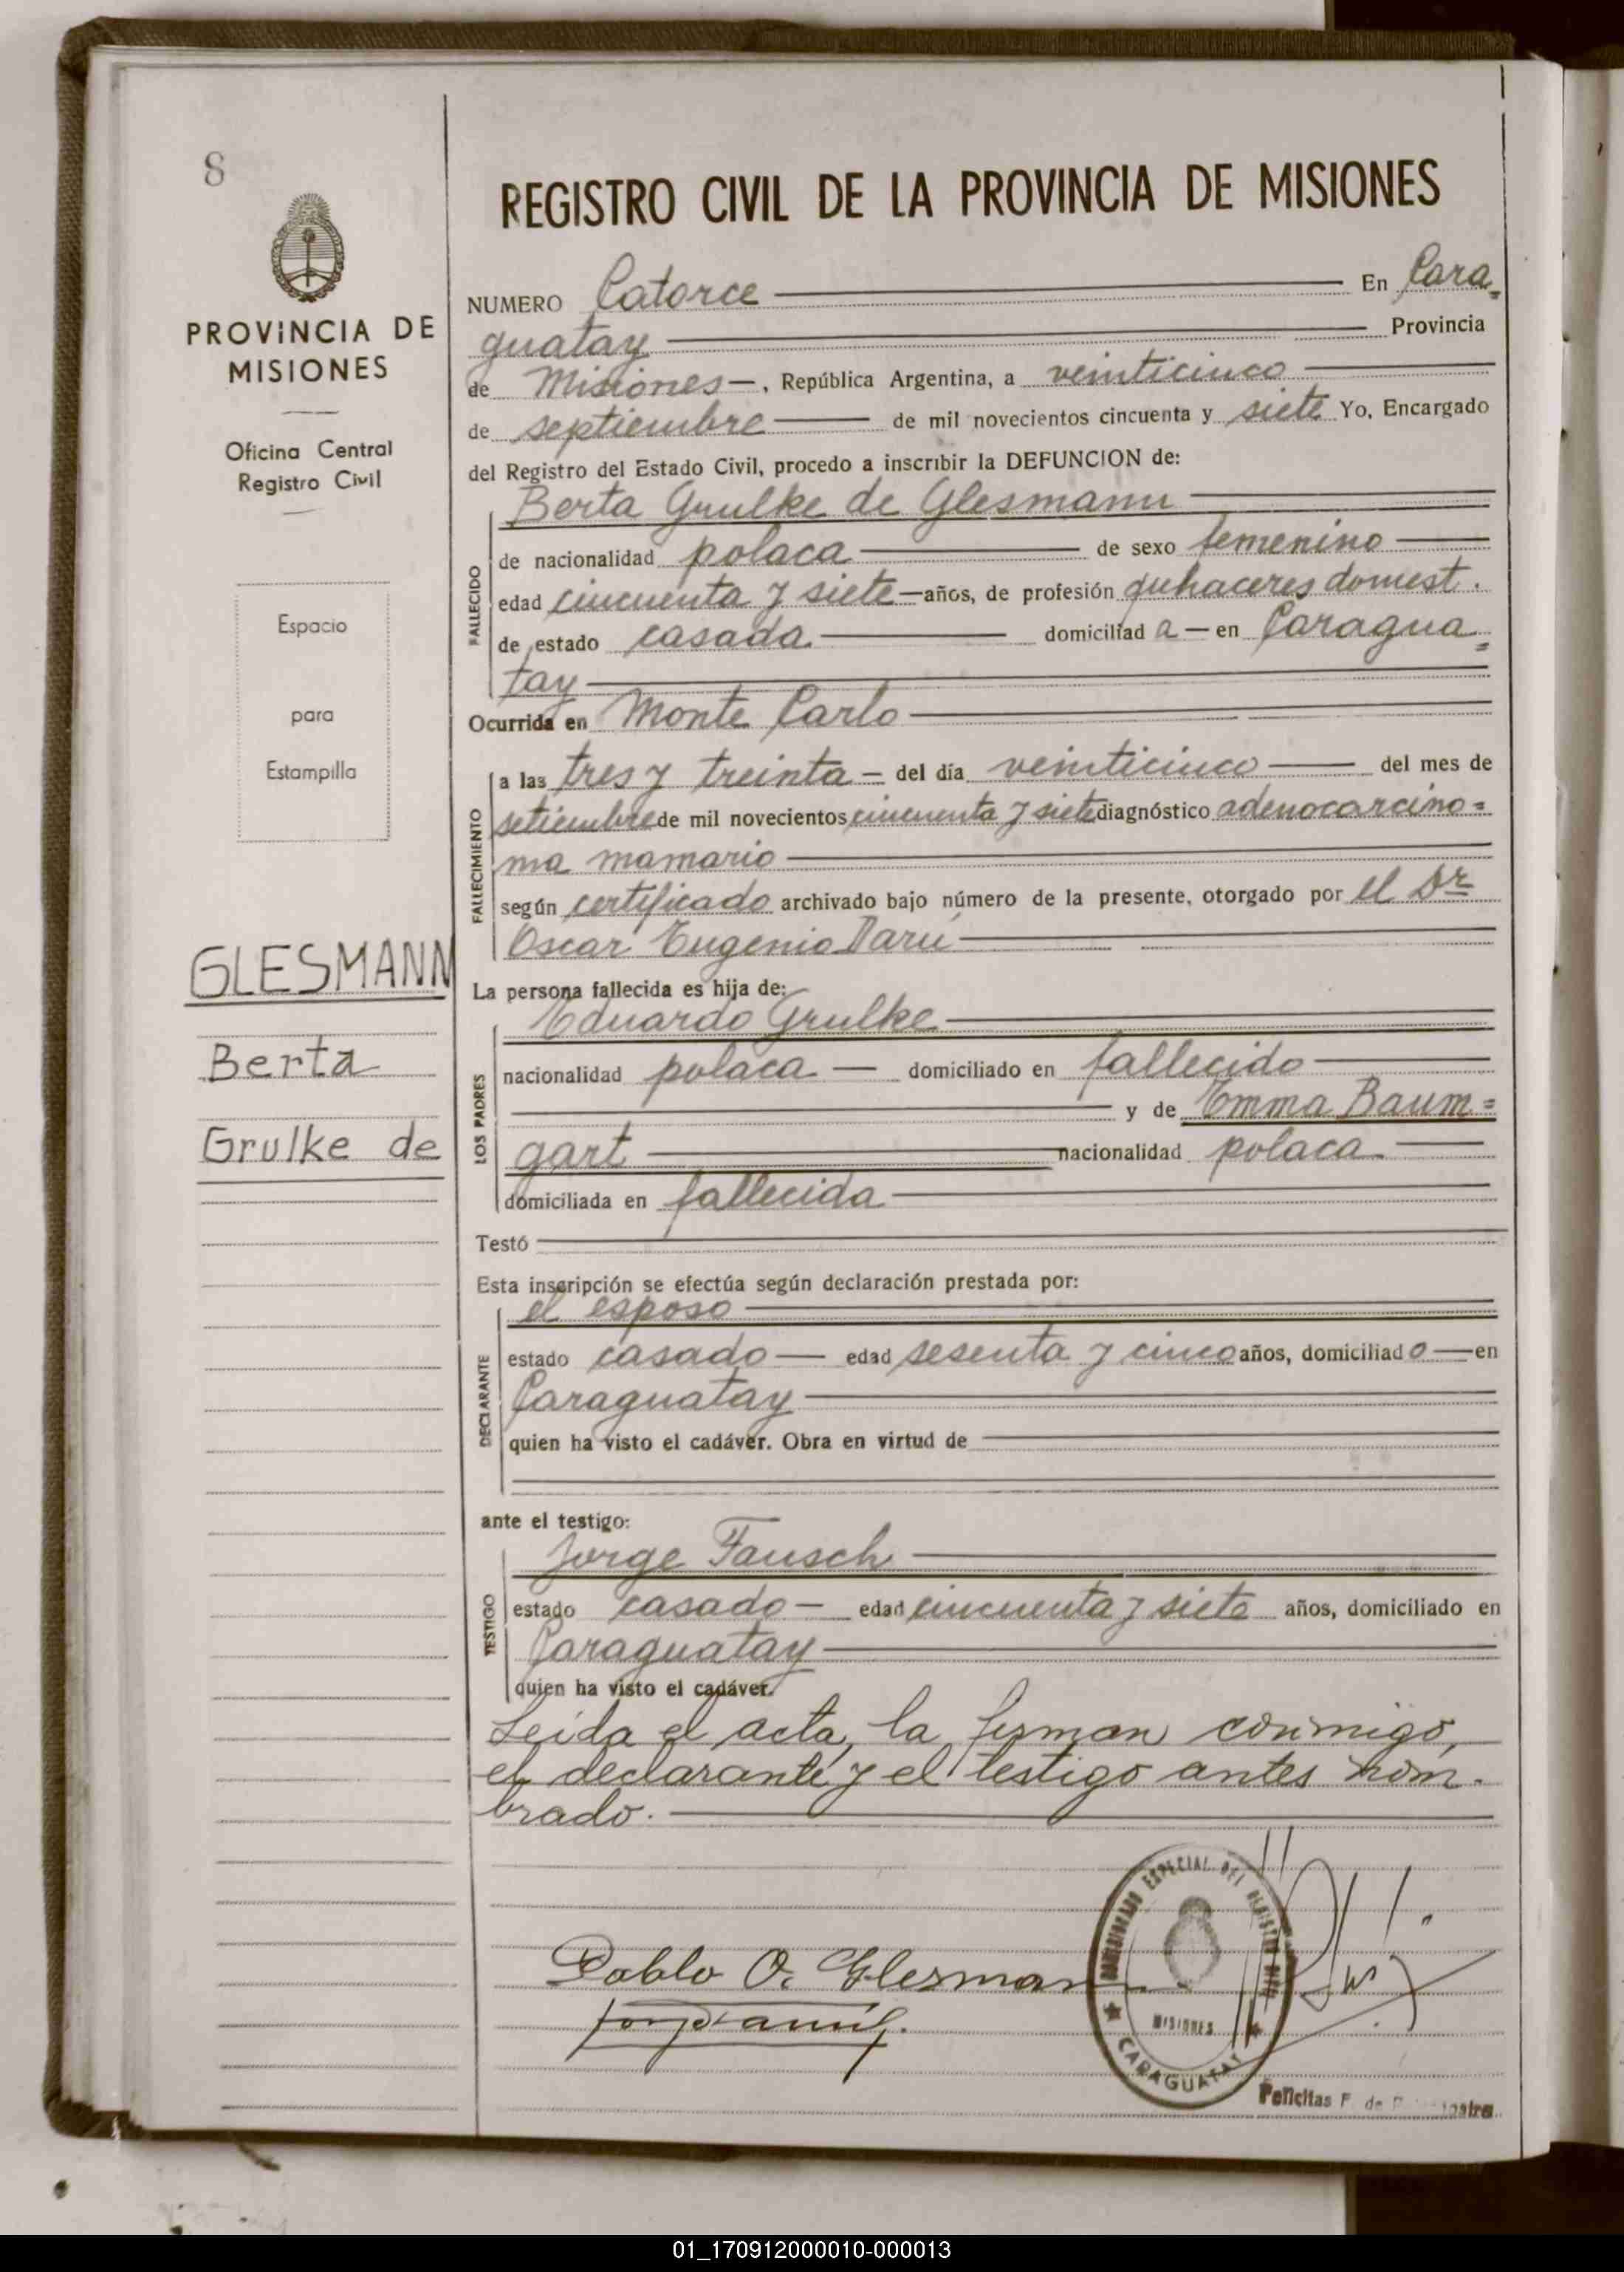 8
PROVINCIA DE
MISIONES
Oficina Central
Registro Civil
Espacio
para
Estampilla
GLESMANN
Berta
Grulke de
REGISTRO CIVIL DE LA PROVINCIA DE MISIONES
NUMERO Catorce En Cara=
guatay Provincia
de Misiones, República Argentina, a veinticinco
de septiembre de mil novecientos cincuenta y siete Yo, Encargado
del Registro del Estado Civil, procedo a inscribir la DEFUNCION de:
FALLECIDO
Berta Grulke de Glesmann
de nacionalidad polaca de sexo femenino
edad cincuenta y siete años, de profesión quhaceres domest.
de estado casada domiciliad a en Caragua=
tay
Ocurrida en Monte Carlo
FALLECIMIENTO
a las tres y treinta del día veinticinco del mes de
setiembre de mil novecientos cincuenta y siete diagnóstico adenocarcino=
ma mamario
según certificado archivado bajo número de la presente, otorgado por el Dr
Oscar Eugenio Darú
La persona fallecida es hija de:
LOS PADRES
Eduardo Grulke
nacionalidad polaca domiciliado en fallecido
y de Emma Baum=
gart nacionalidad polaca
domiciliada en fallecida
Testó
Esta inscripción se efectúa según declaración prestada por:
DECLARANTE
el esposo
estado casado edad sesenta y cinco años, domiciliad o en
Caraguatay
quien ha visto el cadáver. Obra en virtud de
ante el testigo:
TESTIGO
Jorge Fausch
estado casado edad cincuenta y siete años, domiciliado en
Caraguatay
quien ha visto el cadáver.
Leída el acta, la firman conmigo,
el declarante y el testigo antes nom-
brado.
Pablo O. Glesmann
ESPECIAL DEL REGISTRO
MISIONES
CARAGUATAY
Felicitas F. de
01_170912000010-000013